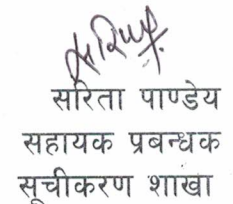 सरिता पाण्डेय
सहायक प्रबन्धक
सूचीकरण शाखा